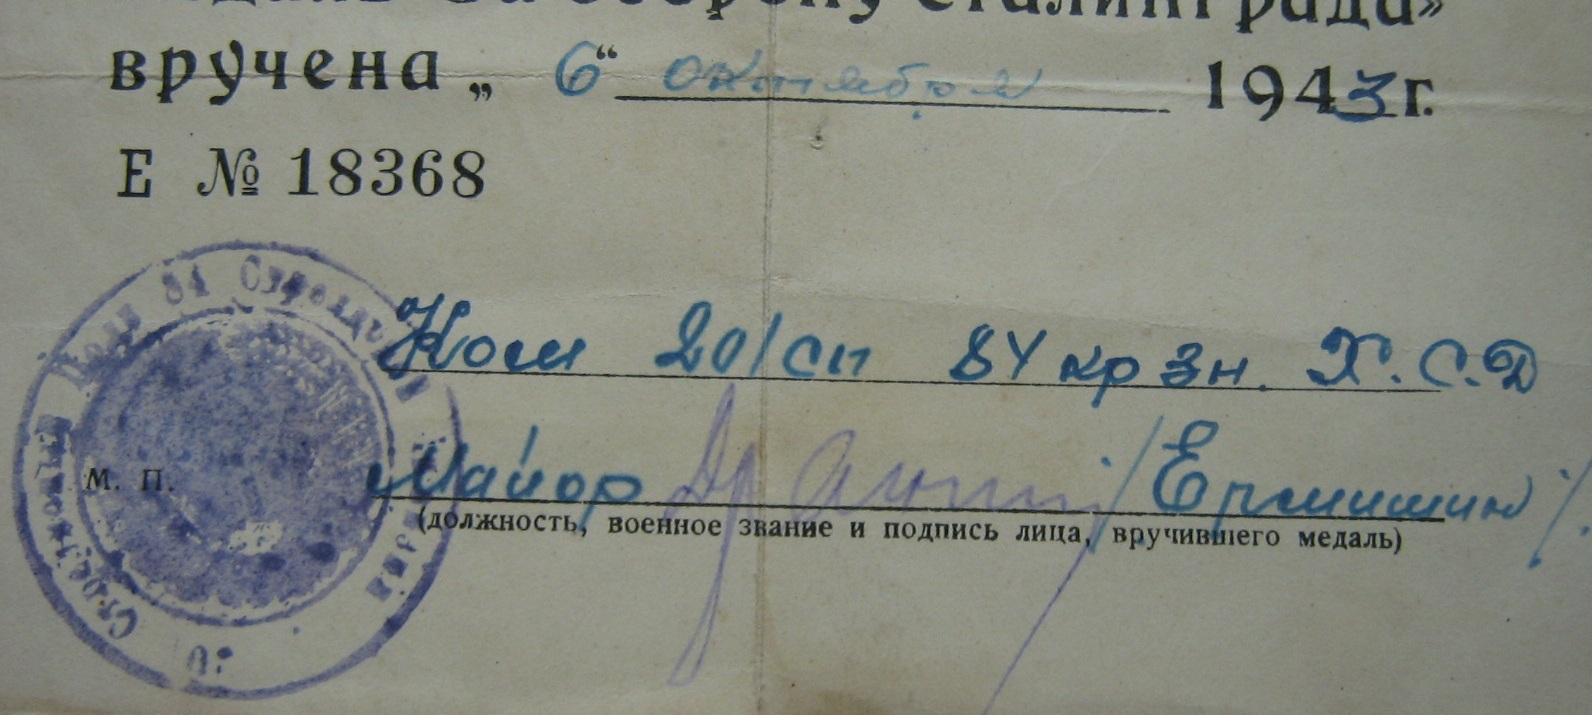 Медаль «За оборону Сталинграда»
вручена „ 6 “ октября 1943 г.
Е № 18368
Ком 201 сп 84 кр зн. Х. С. Д
Майор /Ермишин/.
М. П.
(должность, военное звание и подпись лица, вручившего медаль)